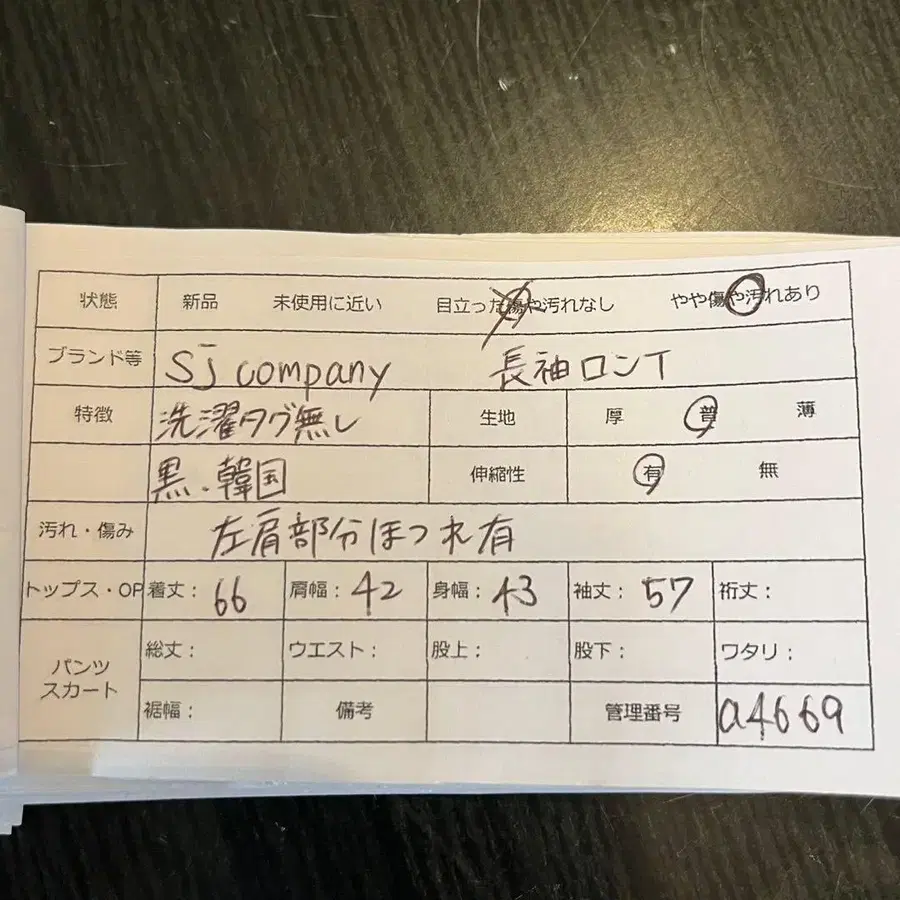 状態 新品 未使用に近い 目立った傷や汚れなし やや傷や汚れあり
ブランド等 Sj company 長袖ロンT
特徴 洗濯タグ無し 生地 厚 普 薄
黒、韓国 伸縮性 有 無
汚れ・傷み 左肩部分ほつれ有
トップス・OP 着丈: 66 肩幅: 42 身幅: 43 袖丈: 57 裄丈:
パンツ スカート 総丈: ウエスト: 股上: 股下: ワタリ:
裾幅: 備考 管理番号 a4669